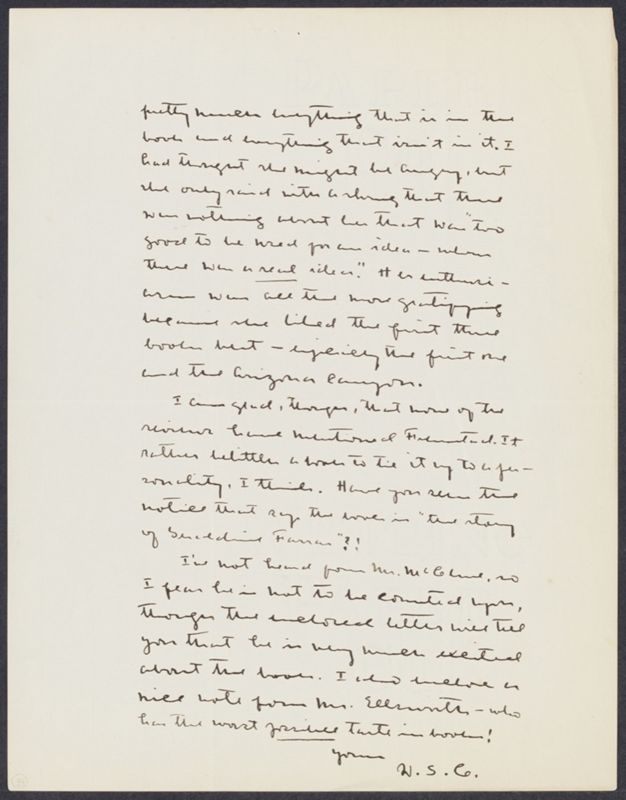 pretty much everything that is in the
book and everything that isn't in it. I
had thought she might be angry, but
she only said with a shrug that there
was nothing about her that was "too
good to be used for an idea — when
there was a real idea." Her enthusi-
asm was all the more gratifying
because she liked the first three
books best — especially the first one
and the Arizona canyon.
I am glad, though, that none of the
reviewers have mentioned Fremstad. It
rather belittles a book to tie it up to a per-
sonality, I think. Have you seen the
notice that says the book is "the story
of Geraldine Farrar"?!
I've not heard from Mr. McClure, so
I fear he is not to be counted upon,
though the enclosed letter will tell
you that he is very much excited
about the book. I also enclose a
nice note from Mr. Ellsworth — who
has the worst possible taste in books!
Yours
W. S. C.